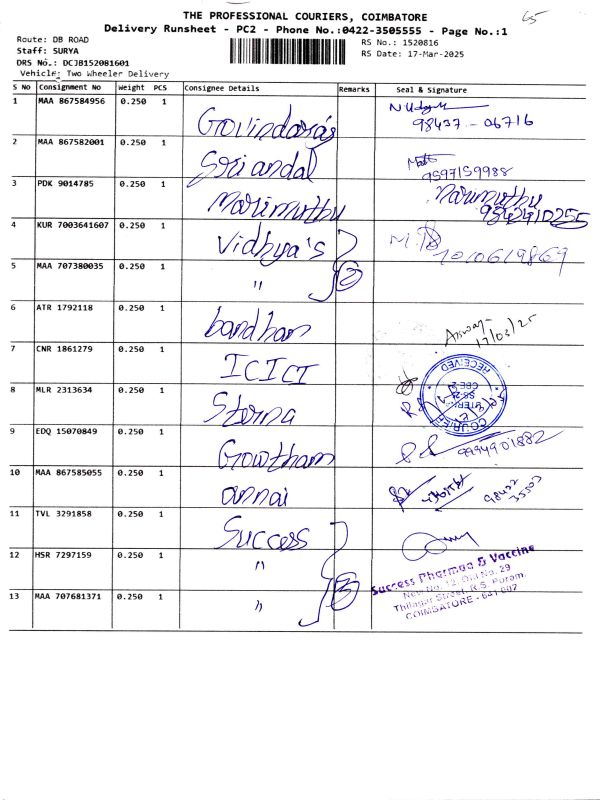 65
THE PROFESSIONAL COURIERS, COIMBATORE
Delivery Runsheet - PC2 - Phone No.:0422-3505555 - Page No.:1
Route: DB ROAD
Staff: SURYA
DRS No.: DCJB152081601
Vehicle: Two Wheeler Delivery
RS No.: 1520816
RS Date: 17-Mar-2025
S No Consignment No Weight PCS Consignee Details Remarks Seal & Signature
1 MAA 867584956 0.250 1 Govindaraj
98437-06716
2 MAA 867582001 0.250 1 Sori andal 9597159988
3 PDK 9014785 0.250 1 Marimuthu Marimuthu
9842410255
4 KUR 7003641607 0.250 1 Vidhya's
5 MAA 707380035 0.250 1 " 2
6 ATR 1792118 0.250 1 bandhan 17/03/25
7 CNR 1861279 0.250 1 ICICI
RECEIVED
COURIER
8 MLR 2313634 0.250 1 Sterna
9 EDQ 15070849 0.250 1 Gowtham 9994901882
10 MAA 867585055 0.250 1 annai
11 TVL 3291858 0.250 1 Success
12 HSR 7297159 0.250 1 "
13 MAA 707681371 0.250 1 " 3
Success Pharmaa & Vaccine
New No. 12, Old No. 29
Thilagar Street, R.S. Puram,
COIMBATORE - 641 002